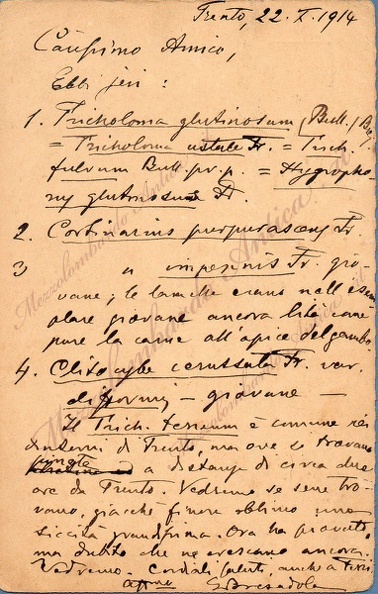 Trento, 22. X. 1914
Carissimo Amico,
Ebbi jeri:
1. Tricholoma glutinosum (Bull.) Big
= Tricholoma ustale Fr. = Trich.
fulvum Bull. pr. p. = Hygropho-
rus glutinosus Fr.
2. Cortinarius purpurascens Fr.
3 " impennis Fr. gio-
vane; le lamelle erano nell'esem
plare giovane ancora lilacine
pure la carne all'apice del gambo.
4. Clitocybe cerussata Fr. var.
difformis – giovane –
Il Trich. terreum è comune nei
dintorni di Trento, ma ove si trovano
a distanza di circa due
ore da Trento. Vedremo se se ne tro-
vano, giacché finora ebbimo una
siccità grandissima. Ora ha piovuto,
ma dubito che ne crescano ancora.
Vedremo. Cordiali saluti, anche a
affmo GBresadola
Mezzolombardo Antica